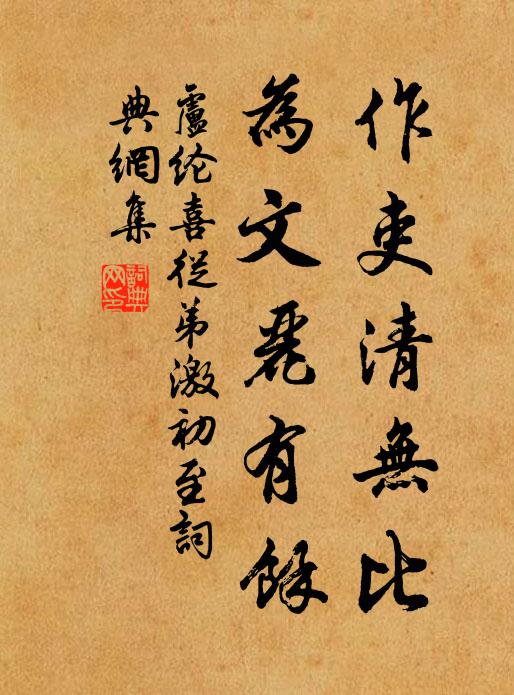 作吏清無比
為文麗有餘
盧纶喜從弟激初至詞
典網集
詞典
网印